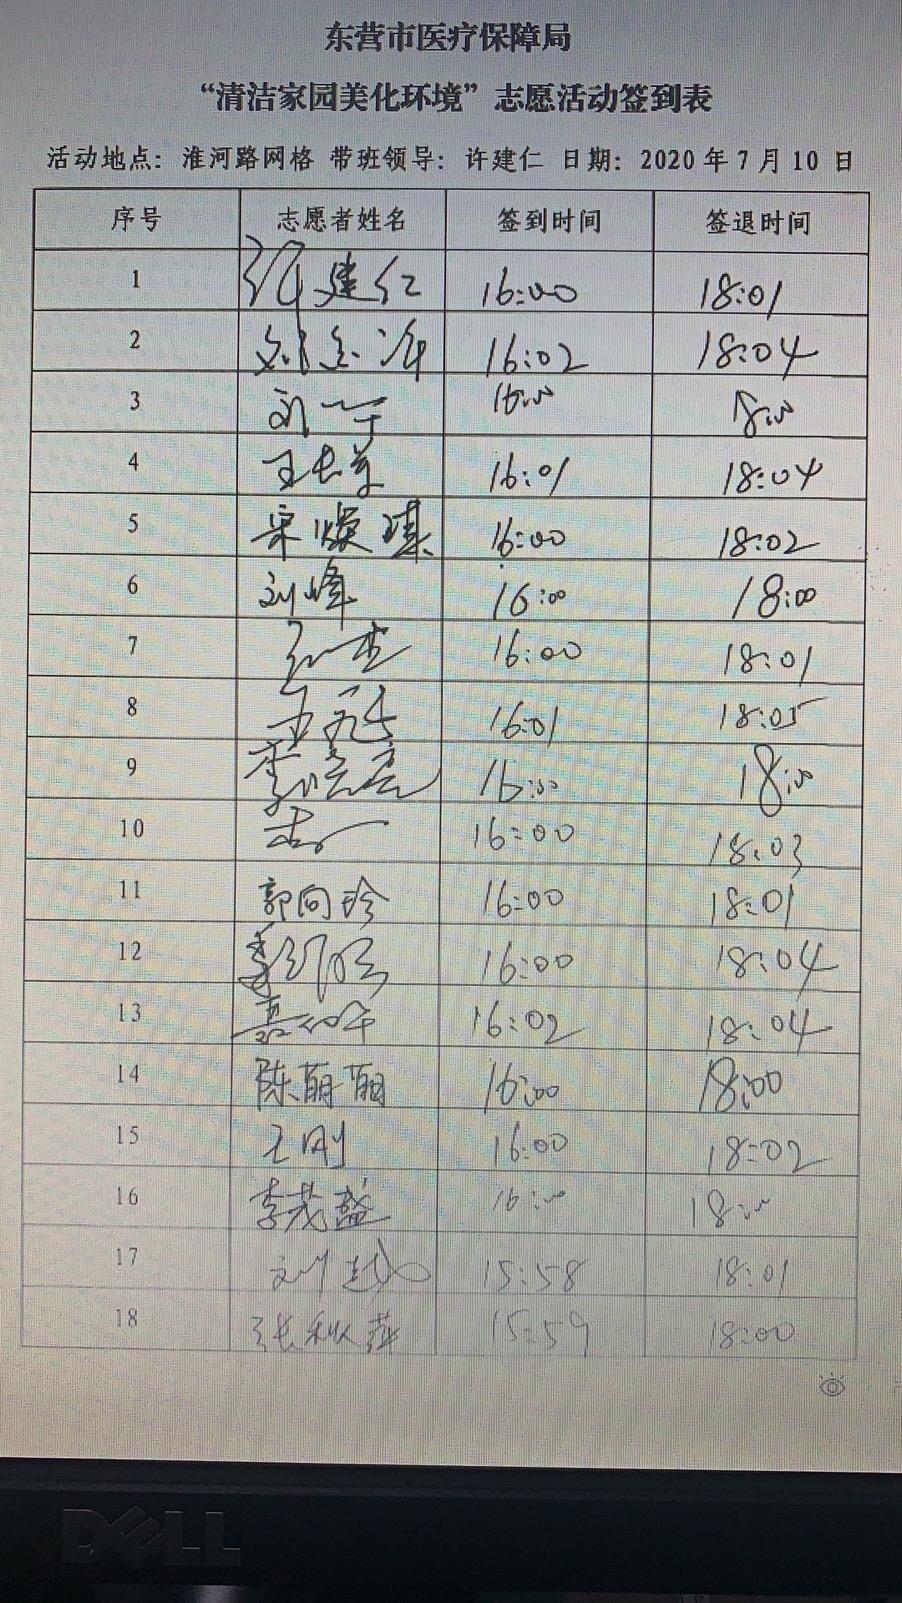 东营市医疗保障局
“清洁家园美化环境”志愿活动签到表
活动地点：淮河路网格 带班领导：许建仁 日期：2020年7月10日
序号 志愿者姓名 签到时间 签退时间
1 许建仁 16:00 18:01
2 16:02 18:04
3 刘一宁 16:00 18:00
4 16:01 18:04
5 宋焕琪 16:00 18:02
6 刘峰 16:00 18:00
7 16:00 18:01
8 16:01 18:05
9 李晓亮 16:00 18:00
10 16:00 18:03
11 郭向玲 16:00 18:01
12 16:00 18:04
13 16:02 18:04
14 陈丽丽 16:00 18:00
15 王刚 16:00 18:02
16 李茂盛 16:00 18:00
17 15:58 18:01
18 张秋萍 15:59 18:00
DELL